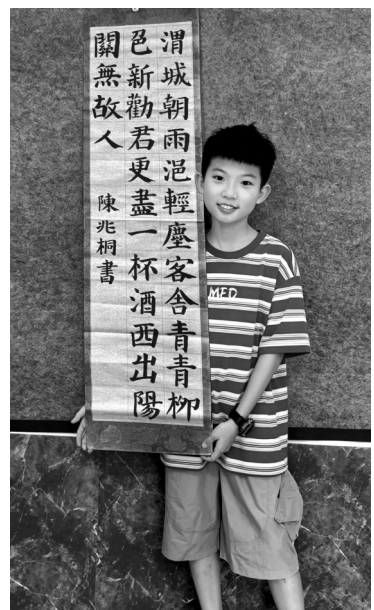 渭城朝雨浥輕塵客舍青青柳
邑新勸君更盡一杯酒西出陽
關無故人
陳兆桐書
MED